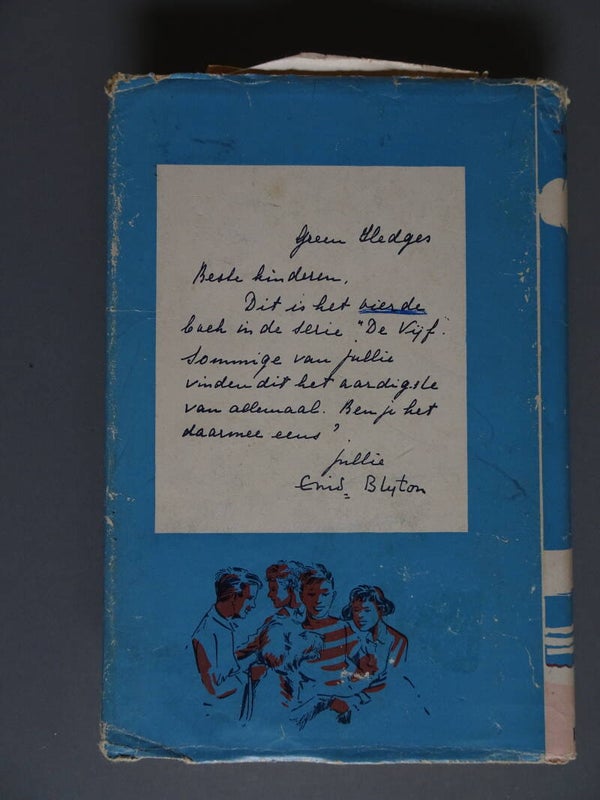 Green Hedges
Beste kinderen,
Dit is het vierde
boek in de serie "De Vijf".
Sommige van jullie
vinden dit het aardigste
van allemaal. Ben je het
daarmee eens?
jullie
Enid Blyton